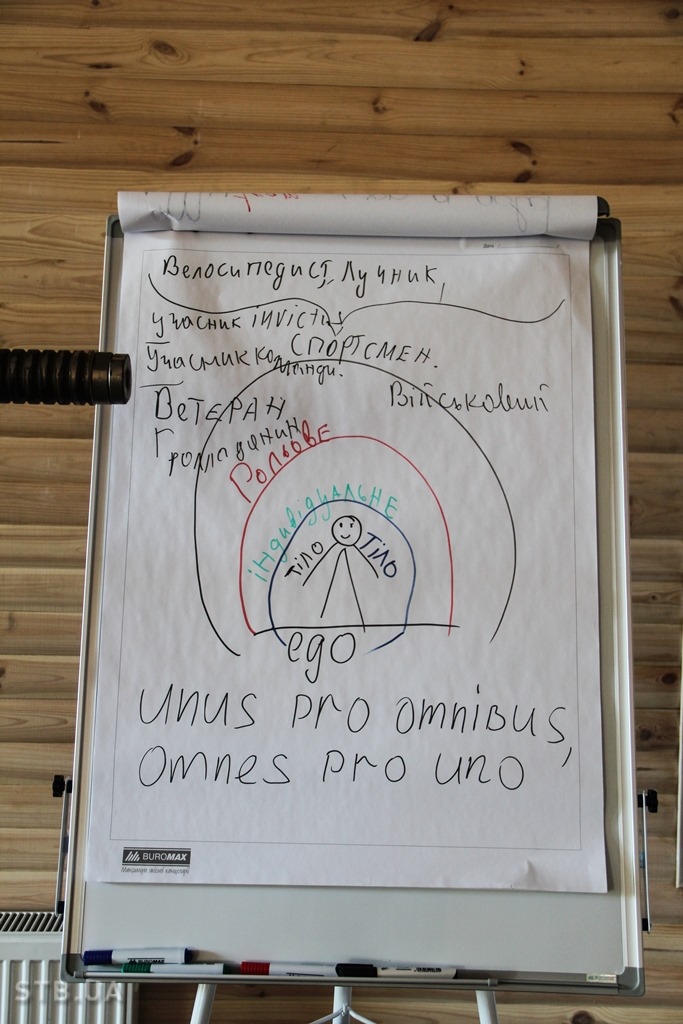 Велосипедист, Лучник,
учасник invictus
СПОРТСМЕН.
Учасник команди.
Ветеран
Військовий
Громадянин
Рольове
індивідуальне
Тіло Тіло
ego
unus pro omnibus,
omnes pro uno
BUROMAX
STB.UA